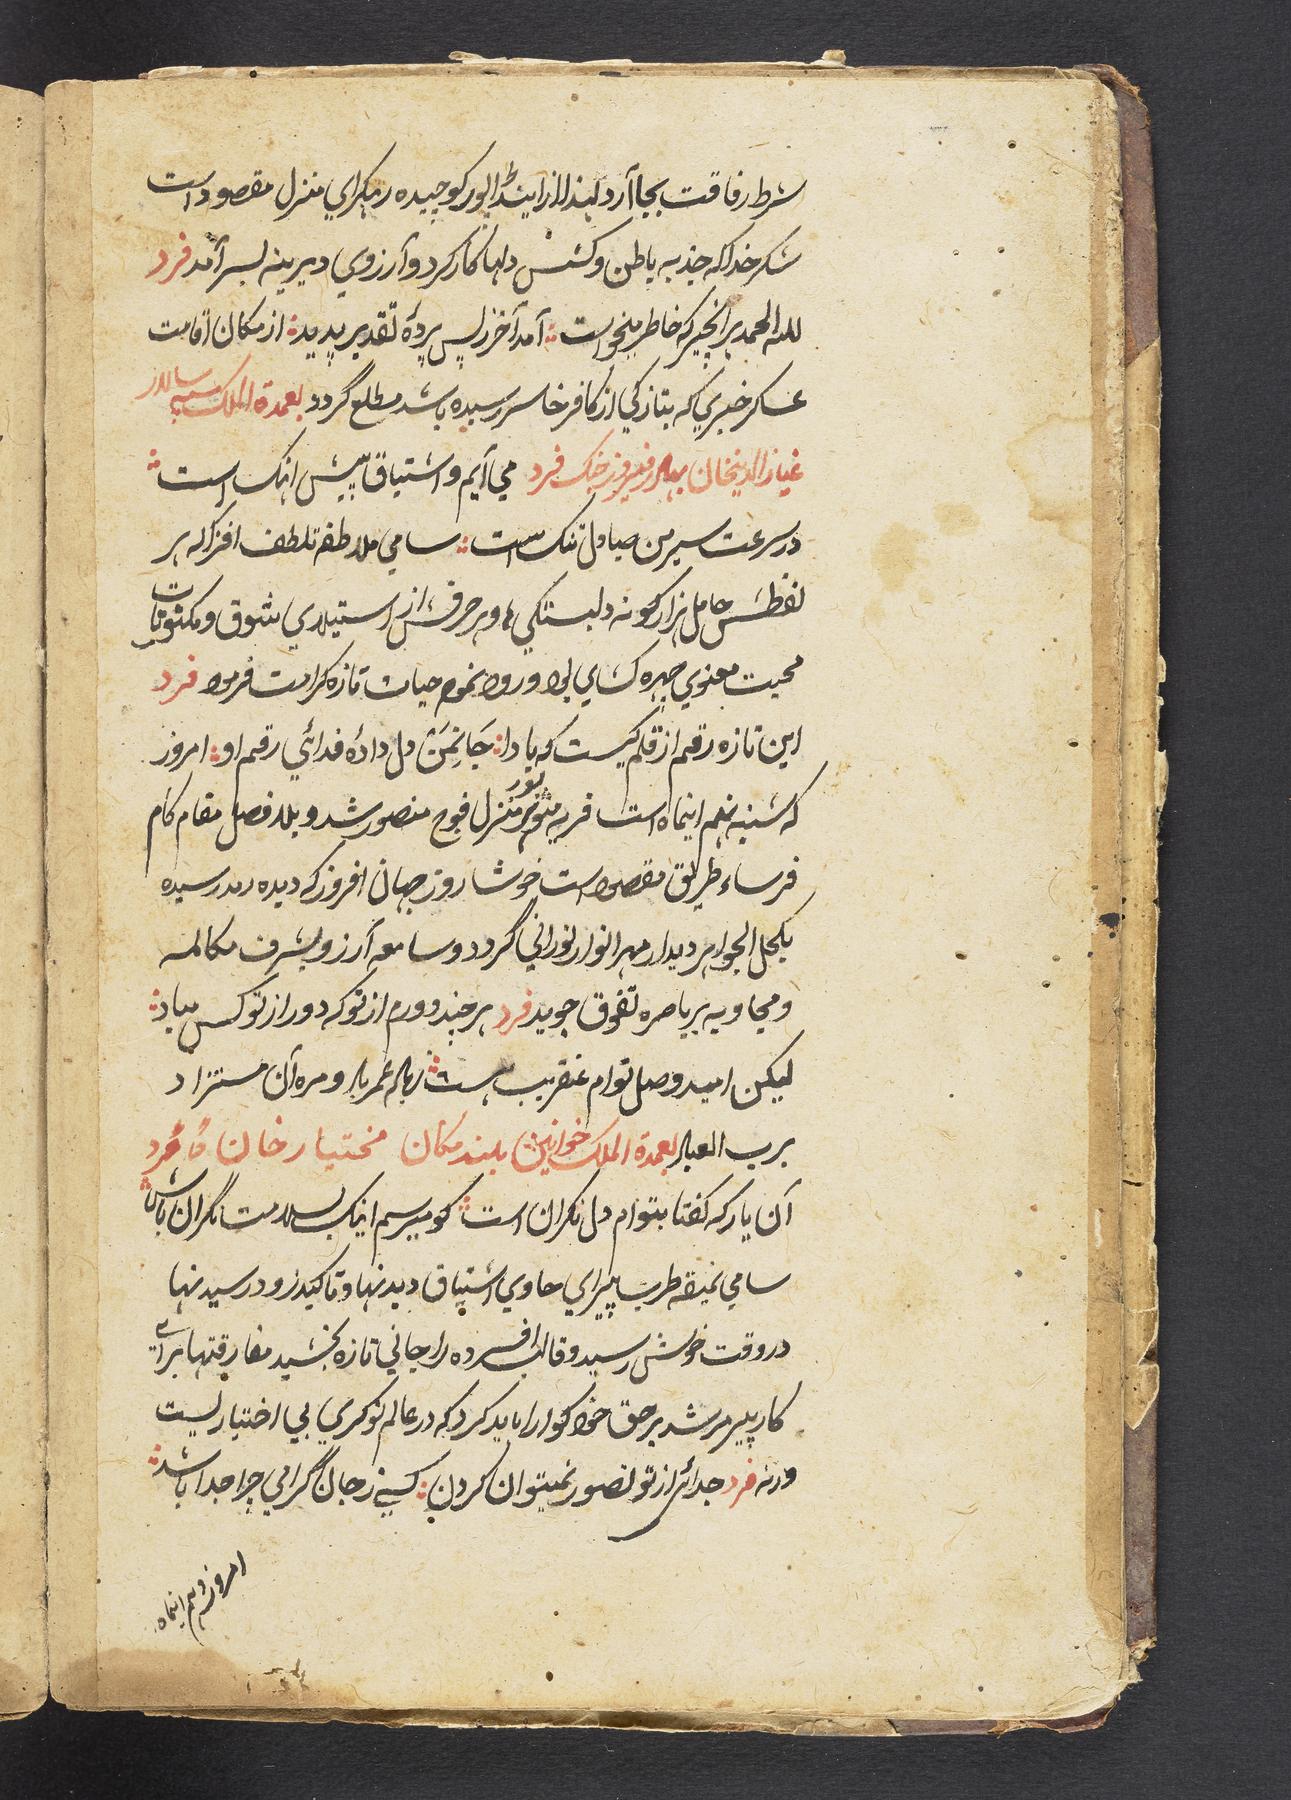 شرط رفاقت بجا آرد لهذا از اینداپور کوچیده رهکرای منزل مقصود است
شکر خدا که جذبه باطن و کشش دلها کار کرد و آرزوی دیرینه بسر آمد فرد
لله الحمد هر انچیز که خاطر میخواست آمد آخر ز پس پردهٔ تقدیر پدید از مکان اقامت
عساکر خبری که بتازکی از کافر خاسر رسیده باشد مطلع گردد بعمدة الملک سپه سالار
غیاز الدینخان بهادر فیروز جنک فرد می آیم و اشتیاق پیش اهنک است
در سرعت سیر من صبا دل تنک است سامی ملاطفه تلطف افزا که هر
لفظش حامل هزار کونه دلبستکی ها و هر حرفش از استیلای شوق و مکتومات
محبت معنوی چهره کشای بود ورود نموده حیات تازه کرامت فرمود فرد
این تازه رقم از قلم کیست که یادا جَانِمَن دل دادهٔ فدائی رقم او امروز
که شنبه نهم اینماه است قریه منزل فیوج منصور شد و بلا فصل مقام کام
فرساء طریق مقصود است خوشا روز جهان افروز که دیده رمد رسیده
بکحل الجواهر دیدار مهر انوار نورانی گردد و سامعه آرزو بشرف مکالمه
و مجاوبه بر باصره تفوق جوید فرد هر چند دورم از تو که دور از تو کس مباد
لیکن امید وصل توام عنقریب هست بهاره عمر باد و مره آن مستزاد
برب العباد بعمدة الملک خوانین بلند مکان مختیار خان فرد
آن یار که گفتا بتوام دل نکران است کو میرسم اینک بسلامت نگران باش
سامی نمیقه طرب پیرای حاوی اشتیاق دیدنها و تاکید زود رسیدنها
در وقت خوش رسید و قالب افسرده را جانی تازه بخشید مفارقتها برای
کار پیر مرشد بر حق خود کوارا باید کرد که در عالم نوکری بی اختیاریست
ورنه فرد جدائی از تو تصور نمیتوان کردن کسی ز جان گرامی چرا جدا باشد
امروز دهم اینماه